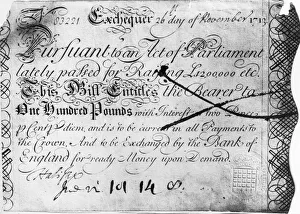 No 83221 Exchequer 26 day of November 1713
Pursuant to an Act of Parliament
lately passed for Raising L1200000 etc.
This Bill Entitles the Bearer to
One Hundred Pounds with Interest at two Pence
p Cent p diem, and is to be current in all Payments to
the Crown, And to be Exchanged by the Bank of
England for ready Money upon Demand.
10 14 8